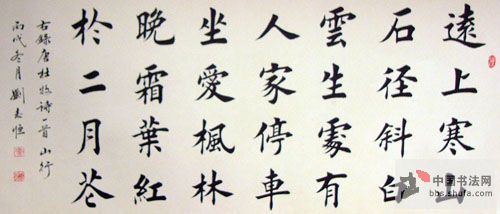 遠上寒山
石径斜白
雲生處有
人家停車
坐愛楓林
晚霜葉紅
於二月花
右錄唐杜牧诗一首 山行
丙戌冬月
中国书法网
bbs.shufa.com